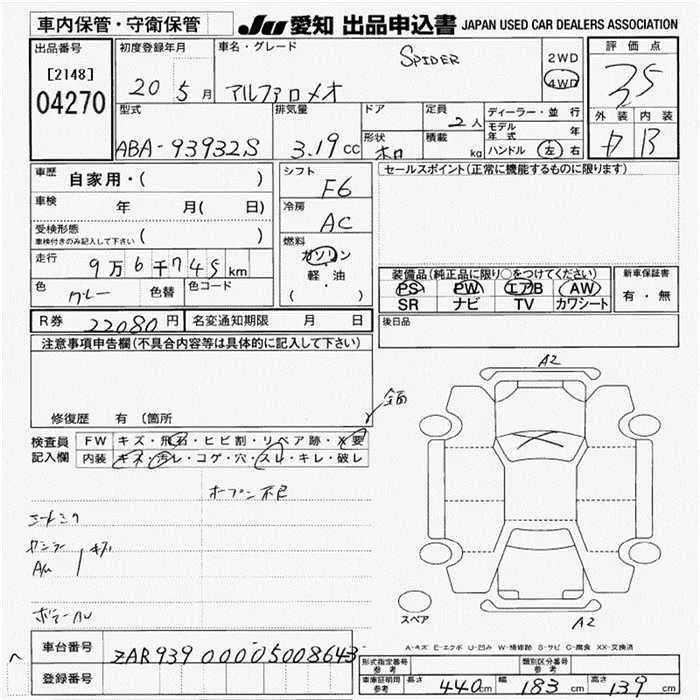 車内保管・守衛保管
JU 愛知 出品申込書 JAPAN USED CAR DEALERS ASSOCIATION
出品番号
[2148]
04270
初度登録年月
20 5月
車名・グレード
SPIDER
アルファロメオ
2WD
4WD
評価点
外装 内装
B
型式
ABA-93932S
排気量
3.19cc
ドア
形状
ホロ
定員
2人
積載
kg
ディーラー・並行
モデル年式 年
ハンドル 左 右
車歴 自家用・( )
車検 年 月( 日)
受検形態
車検付きのみ記入して下さい ( )
走行 9万6千745km
色 グレー 色替 色コード
シフト
F6
冷房
AC
燃料
ガソリン
軽・油
( )
セールスポイント(正常に機能するものに限ります)
装備品(純正品に限り○をつけてください)
PS PW エアB AW
SR ナビ TV カワシート
新車保証書
有・無
R券 22080円 名変通知期限 月 日
後日品
注意事項申告欄(不具合内容等は具体的に記入して下さい)
修復歴 有 (箇所
検査員
記入欄
FW キズ・飛石・ヒビ割・リペア跡・X要
内装 キズ・汚レ・コゲ・穴・スレ・キレ・破レ
オープン不良
A2
スペア
A2
A-キズ E-エクボ U-凹み W-補修跡 S-サビ C-腐食 XX-交換済
車台番号 ZAR93900005008643
登録番号
形式指定番号
参考
類別区分番号
参考
車庫証明用
参考
長さ 440cm 幅 183cm 高さ 139cm